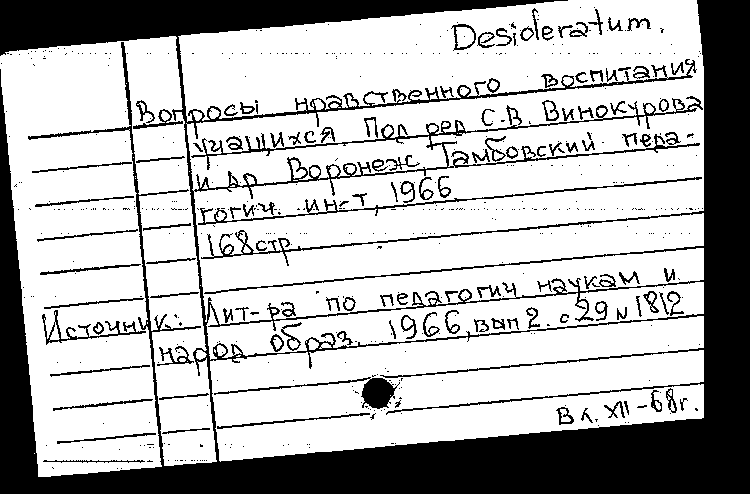 Desideratum.
Вопросы нравственного воспитания
учащихся. Под ред С.В. Винокурова
и др Воронеж, Тамбовский педа-
гогич. инст, 1966.
168стр.
Источник: Лит-ра по педагогич наукам и
народ. образ. 1966, вып 2. с 29 № 1812
В к. XII-68г.